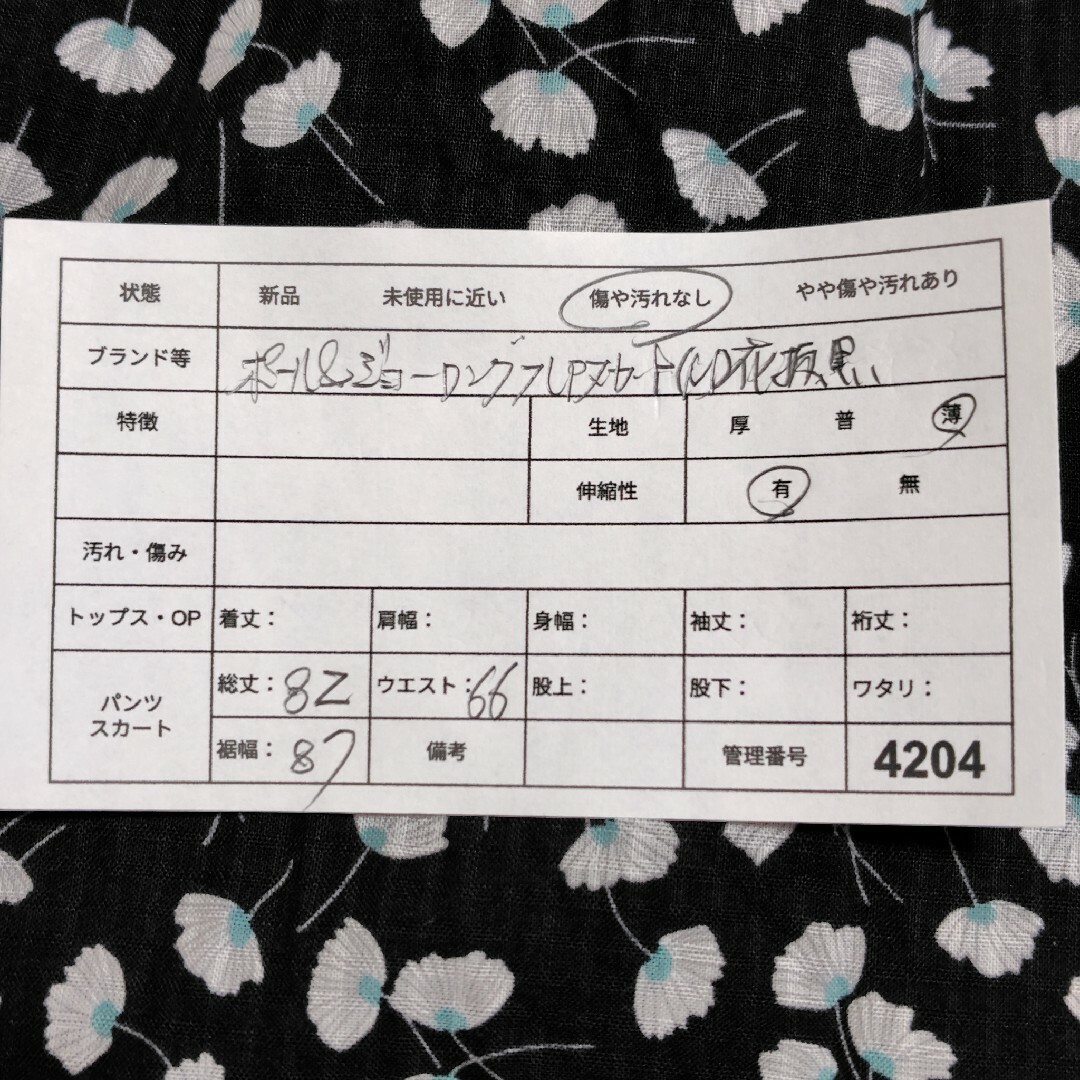 状態 新品 未使用に近い 傷や汚れなし やや傷や汚れあり
ブランド等 ポール&ジョーロングフレアスカート(M)花柄黒
特徴 生地 厚 普 薄
伸縮性 有 無
汚れ・傷み
トップス・OP 着丈: 肩幅: 身幅: 袖丈: 裄丈:
パンツ スカート
総丈:82 ウエスト:66 股上: 股下: ワタリ:
裾幅:87 備考 管理番号 4204